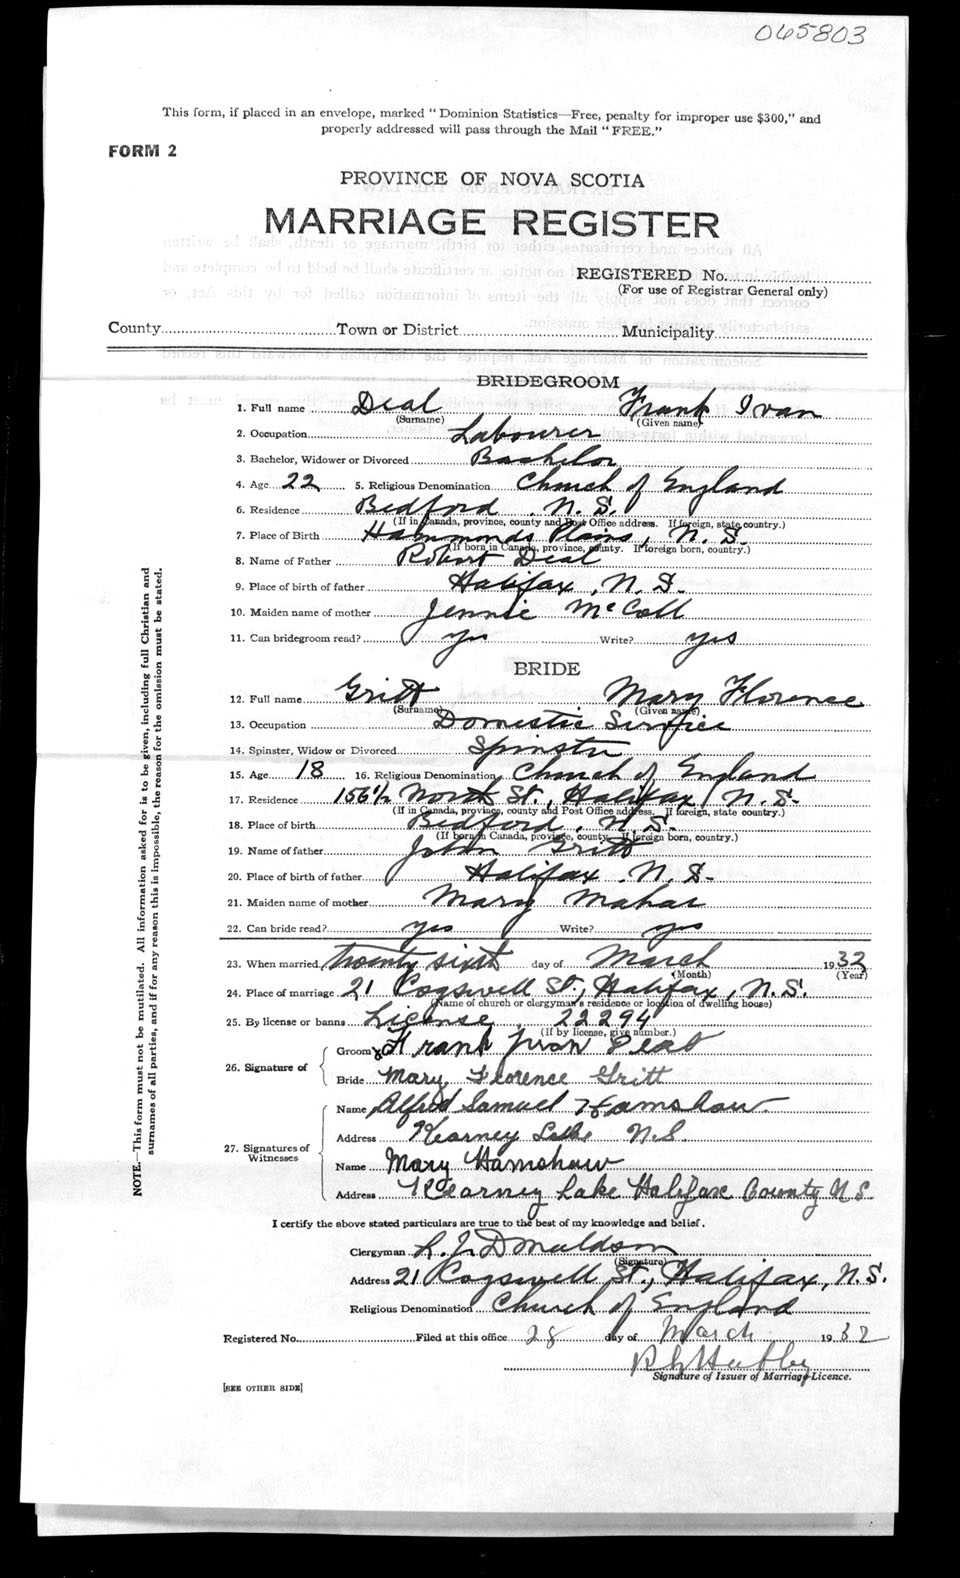 065803
This form, if placed in an envelope, marked "Dominion Statistics—Free, penalty for improper use $300," and
properly addressed will pass through the Mail "FREE."
FORM 2
PROVINCE OF NOVA SCOTIA
MARRIAGE REGISTER
REGISTERED No.
(For use of Registrar General only)
County Town or District Municipality
BRIDEGROOM
1. Full name Deal Frank Ivan
(Surname) (Given name)
2. Occupation Labourer
3. Bachelor, Widower or Divorced Bachelor
4. Age 22 5. Religious Denomination Church of England
6. Residence Bedford, N.S.
(If in Canada, province, county and Post Office address. If foreign, state country.)
7. Place of Birth Hammonds Plains, N.S.
(If born in Canada, province, county. If foreign born, country.)
8. Name of Father Robert Deal
9. Place of birth of father Halifax, N.S.
10. Maiden name of mother Jennie McCall
11. Can bridegroom read? yes Write? yes
BRIDE
12. Full name Gritt Mary Florence
(Surname) (Given name)
13. Occupation Domestic Service
14. Spinster, Widow or Divorced Spinster
15. Age 18 16. Religious Denomination Church of England
17. Residence 156½ North St., Halifax, N.S.
(If in Canada, province, county and Post Office address. If foreign, state country.)
18. Place of birth Bedford, N.S.
(If born in Canada, province, county. If foreign born, country.)
19. Name of father John Gritt
20. Place of birth of father Halifax, N.S.
21. Maiden name of mother Mary Mahar
22. Can bride read? yes Write? yes
23. When married twenty sixth day of March 1932
(Month) (Year)
24. Place of marriage 21 Cogswell St., Halifax, N.S.
(Name of church or clergyman's residence or location of dwelling house)
25. By license or banns License, 22294
(If by license, give number.)
26. Signature of
Groom Frank Ivan Deal
Bride Mary Florence Gritt
27. Signatures of Witnesses
Name Alfred Samuel Hamshaw
Address Kearney Lake N.S.
Name Mary Hamshaw
Address Kearney Lake Halifax County N.S.
I certify the above stated particulars are true to the best of my knowledge and belief.
Clergyman L. J. Donaldson
(Signature)
Address 21 Cogswell St., Halifax, N.S.
Religious Denomination Church of England
Registered No. Filed at this office 28 day of March 1932
Signature of Issuer of Marriage Licence.
[SEE OTHER SIDE]
NOTE.—This form must not be mutilated. All information asked for is to be given, including full Christian and
surnames of all parties, and if for any reason this is impossible, the reason for the omission must be stated.